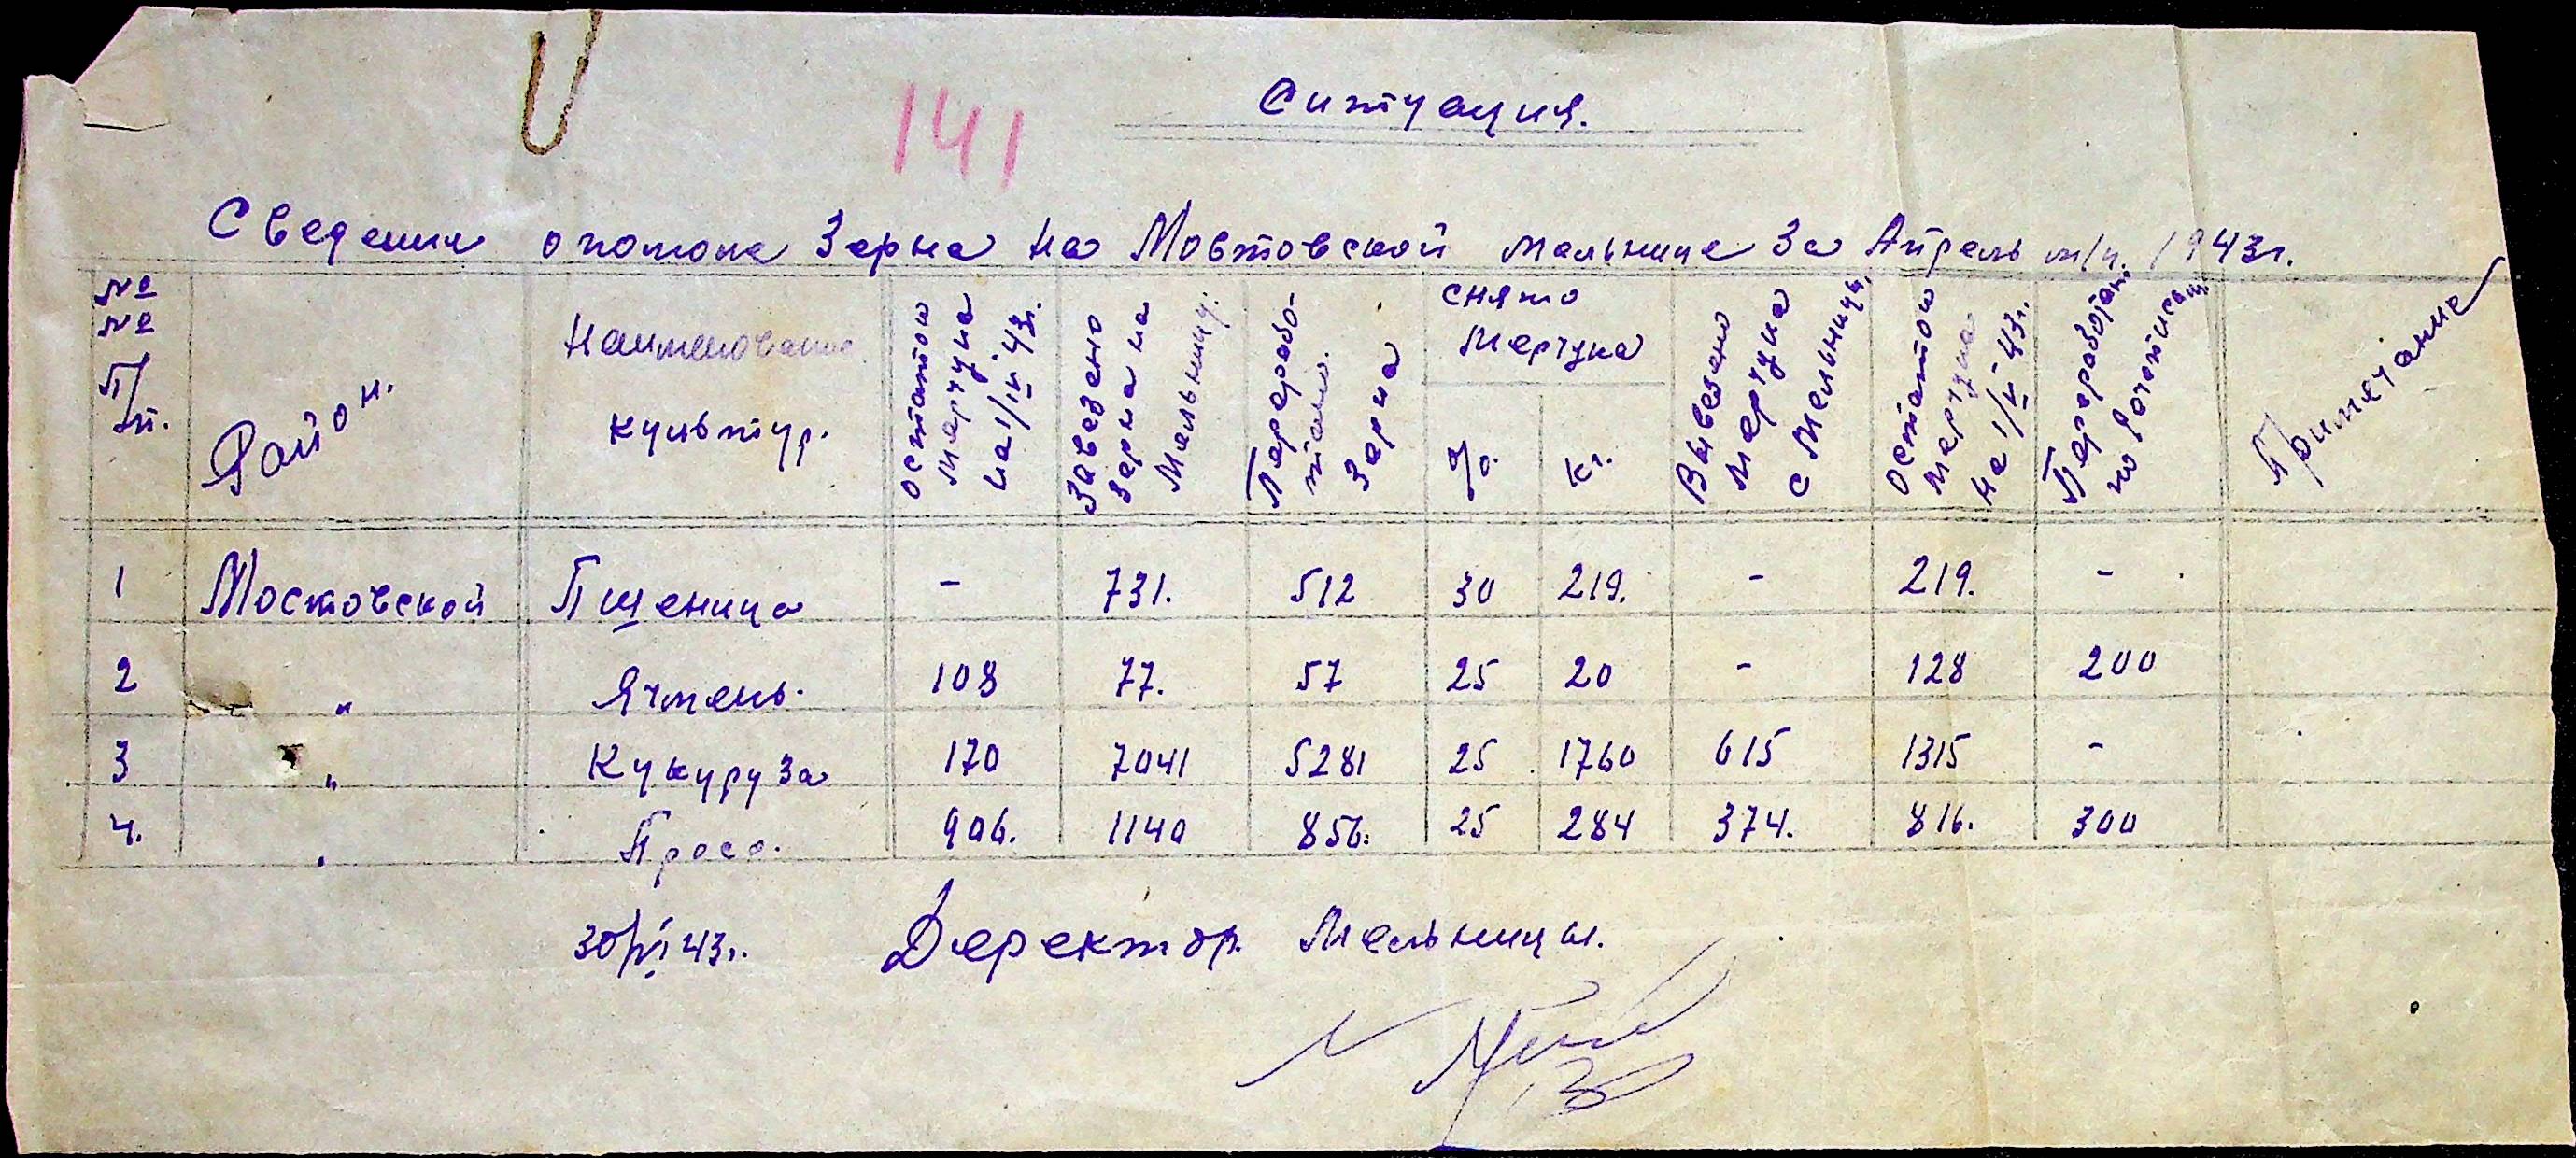 141
Ситуация.
Сведения о помоле Зерна на Мовтовской мельнице За Апрель м/ц. 1943г.
№№ П/п. Район. Наименование культур. остаток мерчука на 1/IV 43г. Завезено зерна на мельницу. Перерабо-тано. Зерна снято мерчука % кг. Вывезено мерчука с мельницы, Остаток мерчука на 1/V-43г. Переработано по Примечание
1 Мостовской Пшеница - 731. 512 30 219. - 219. -
2 " Ячмень. 108 77. 57 25 20 - 128 200
3 " Кукуруза 170 7041 5281 25 1760 615 1315 -
4. " Просо. 906. 1140 856. 25 284 374. 816. 300
30/IV 43г. Деректор. Мельницы.